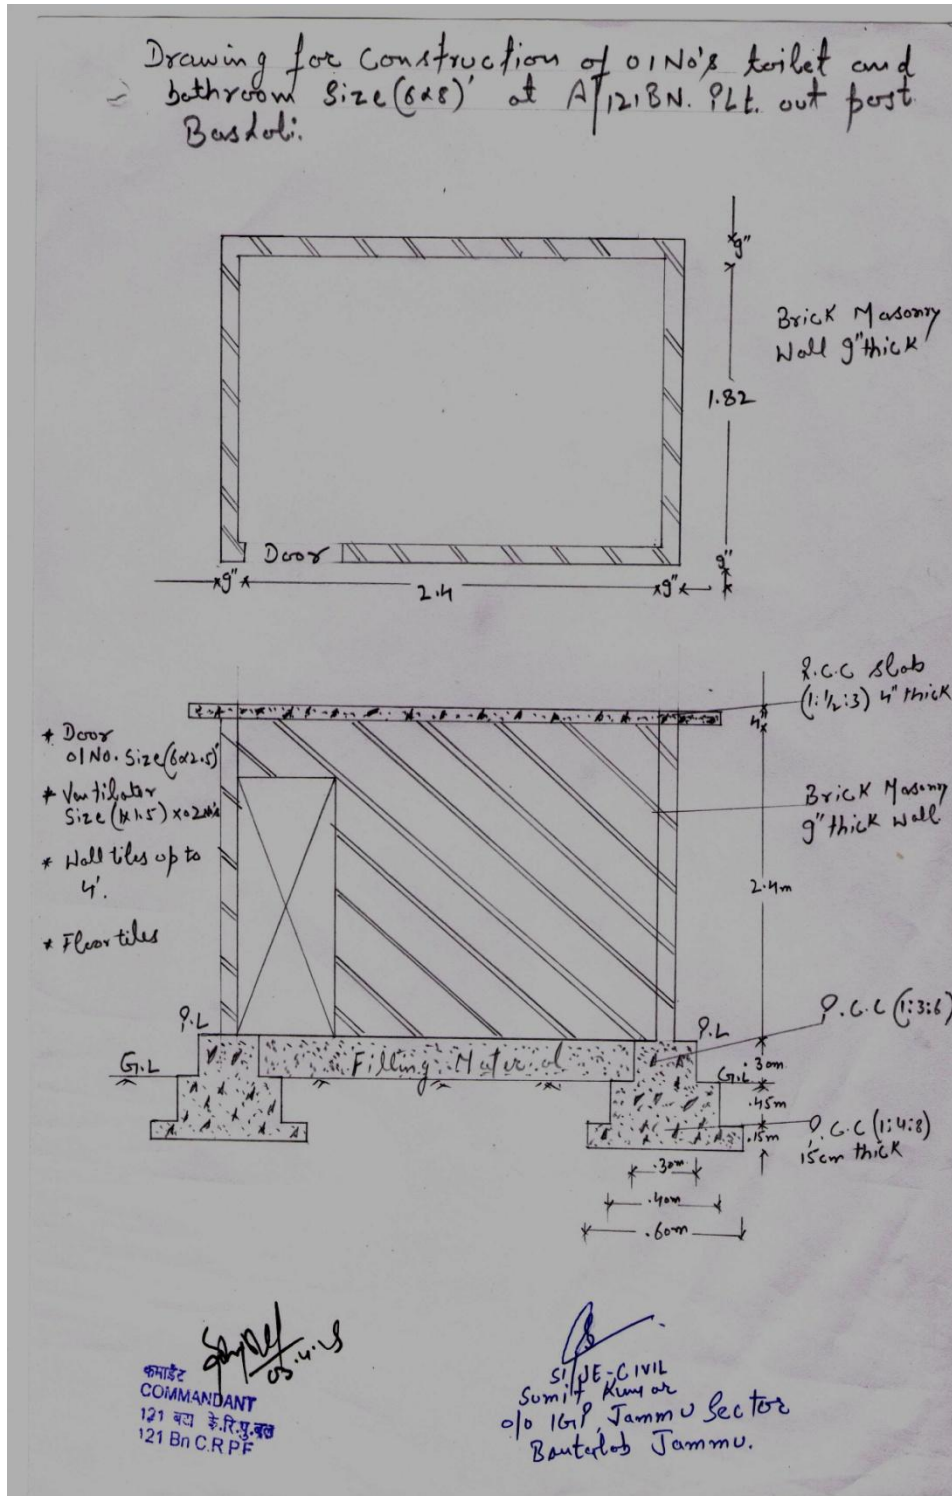 Drawing for Construction of 01No's toilet and
bathroom Size (6x8)' at A/121BN. PLt. out post
Basholi.
9"
Brick Masonry
Wall 9"thick
1.82
Door
9"
9"
2.4
9"
R.C.C slab
(1:1/2:3) 4" thick
4"
* Door
01 No. Size (6x2.5)'
* Ventilator
Size (1x1.5) x02
* Wall tiles up to
4'.
* Floor tiles
Brick Masonry
9"thick Wall
2.4m
P.L
P.L
P.C.C (1:3:6)
G.L
Filling Material
.30m
G.L
.45m
.15m
P.C.C (1:4:8)
15cm thick
.30m
.40m
.60m
03.4.
कमांडेंट
COMMANDANT
121 के.रि.पु.बल
121 Bn C.R.P.F
SI/JE-CIVIL
Sumit Kumar
o/o IGP, Jammu Sector
Jammu.